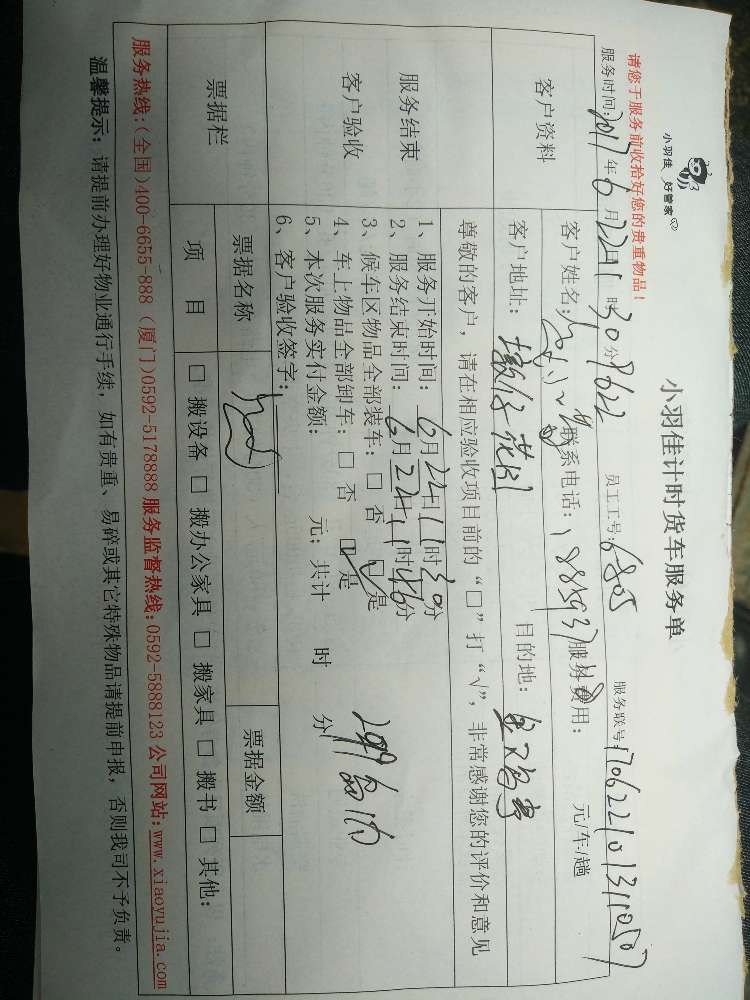 小羽佳 好管家
小羽佳计时货车服务单
请您于服务前收拾好您的贵重物品！
服务时间:2017年6月22日11时30分 员工工号:6805 服务联号:
客户资料
客户姓名: 联系电话: 服务费用: 元/车/趟
客户地址: 目的地:
服务结束
客户验收
尊敬的客户，请在相应验收项目前的“□”打“√”，非常感谢您的评价和意见
1、服务开始时间: 6月22日11时30分
2、服务结束时间: 6月22日11时46分
3、候车区物品全部装车: □ 否 ☑ 是
4、车上物品全部卸车: □ 否 ☑ 是
5、本次服务实付金额: 元; 共计 时 分
6、客户验收签字:
票据栏
票据名称 票据金额
项 目 □ 搬设备 □ 搬办公家具 □ 搬家具 □ 搬书 □ 其他:
服务热线:(全国)400-6655-888 (厦门)0592-5178888 服务监督热线:0592-5888123 公司网站:www.xiaoyujia.com
温馨提示: 请提前办理好物业通行手续, 如有贵重、易碎或其它特殊物品请提前申报, 否则我司不予负责。